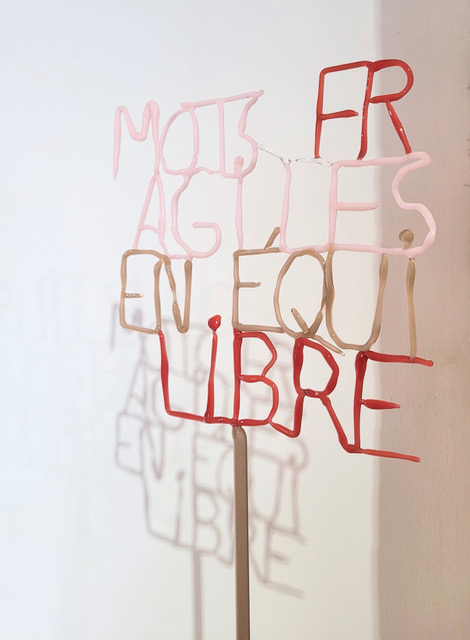 MOTS FR
AGILES
EN ÉQUi
LiBRE